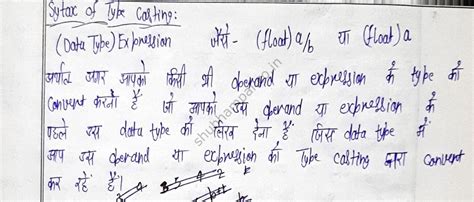 Sytax of Type Casting:
(Data Type) Expression जैसे- (float) a/b या (float) a
अर्थात अगर आपको किसी भी operand या expression के type को
Convert करना है तो आपको उस operand या expression के
पहले उस data type को लिख देना है जिस data type में
आप उस operand या expression को Type casting द्वारा convert
कर रहे हैं।